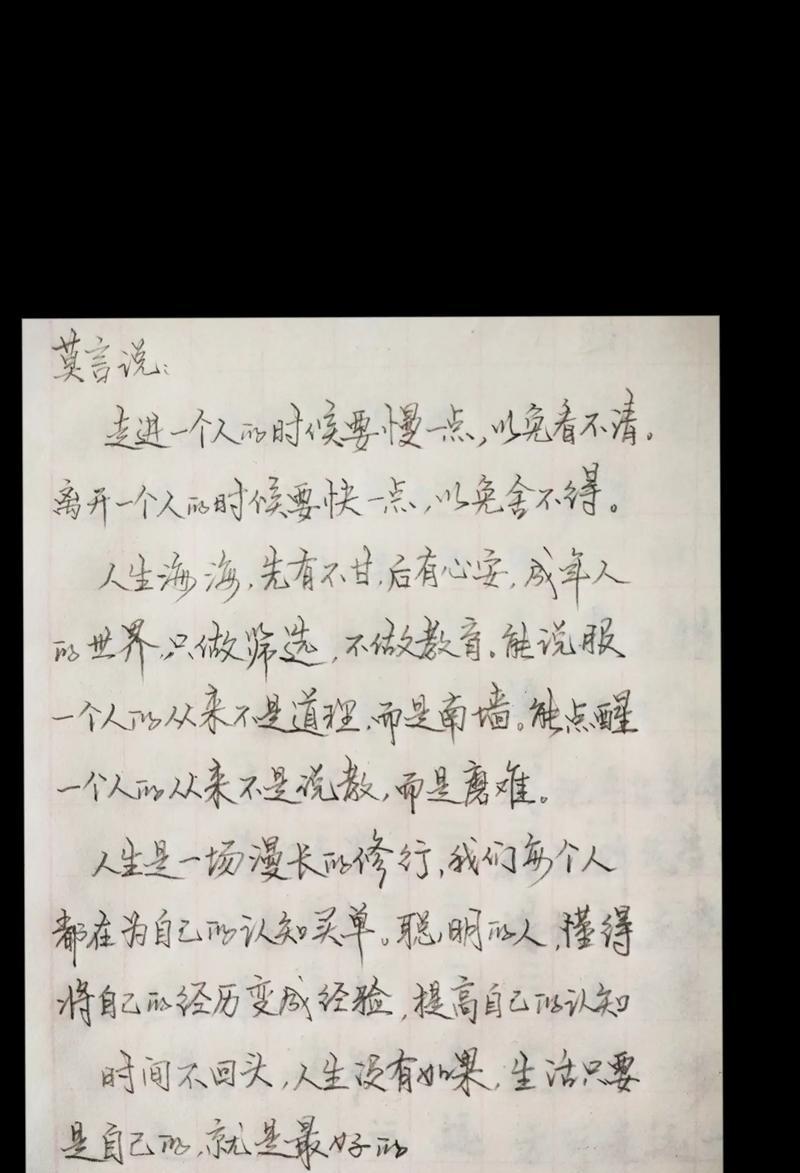 莫言说:
走进一个人的时候要慢一点,以免看不清。
离开一个人的时候要快一点,以免舍不得。
人生海海,先有不甘,后有心安,成年人
的世界,只做筛选,不做教育。能说服
一个人的从来不是道理,而是南墙。能点醒
一个人的从来不是说教,而是磨难。
人生是一场漫长的修行,我们每个人
都在为自己的认知买单。聪明的人,懂得
将自己的经历变成经验,提高自己的认知
时间不回头,人生没有如果,生活只要
是自己的,就是最好的